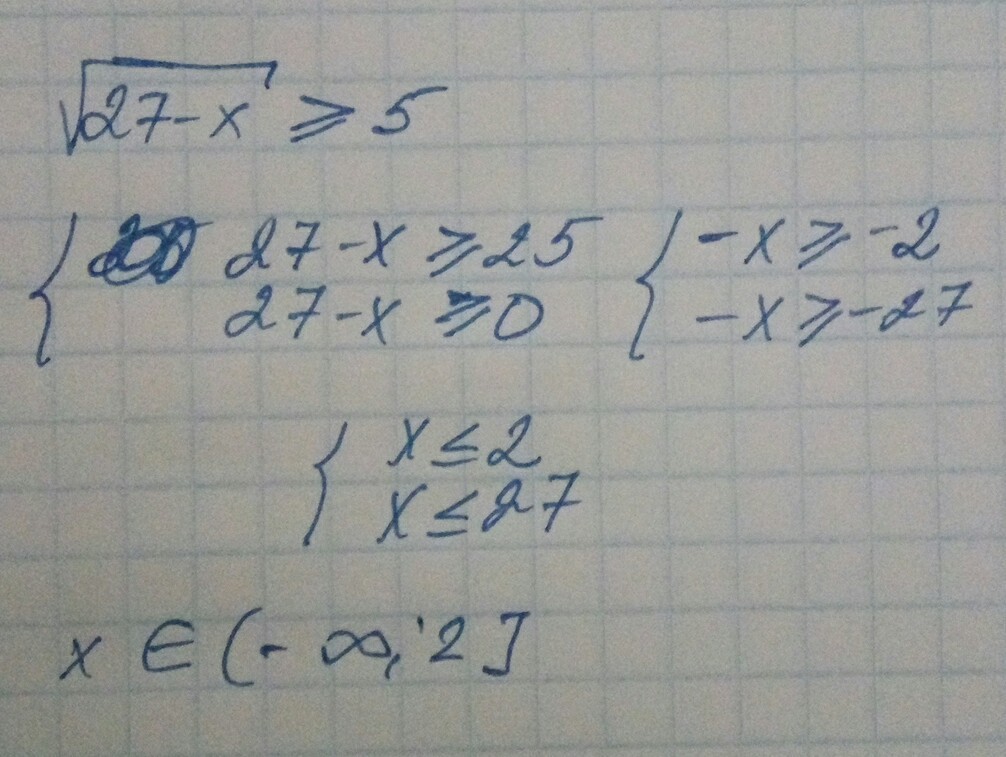 √27-x ⩾ 5
{ 27-x ⩾ 25 { -x ⩾ -2
27-x ⩾ 0 -x ⩾ -27
{ x ≤ 2
x ≤ 27
x ∈ (-∞; 2]